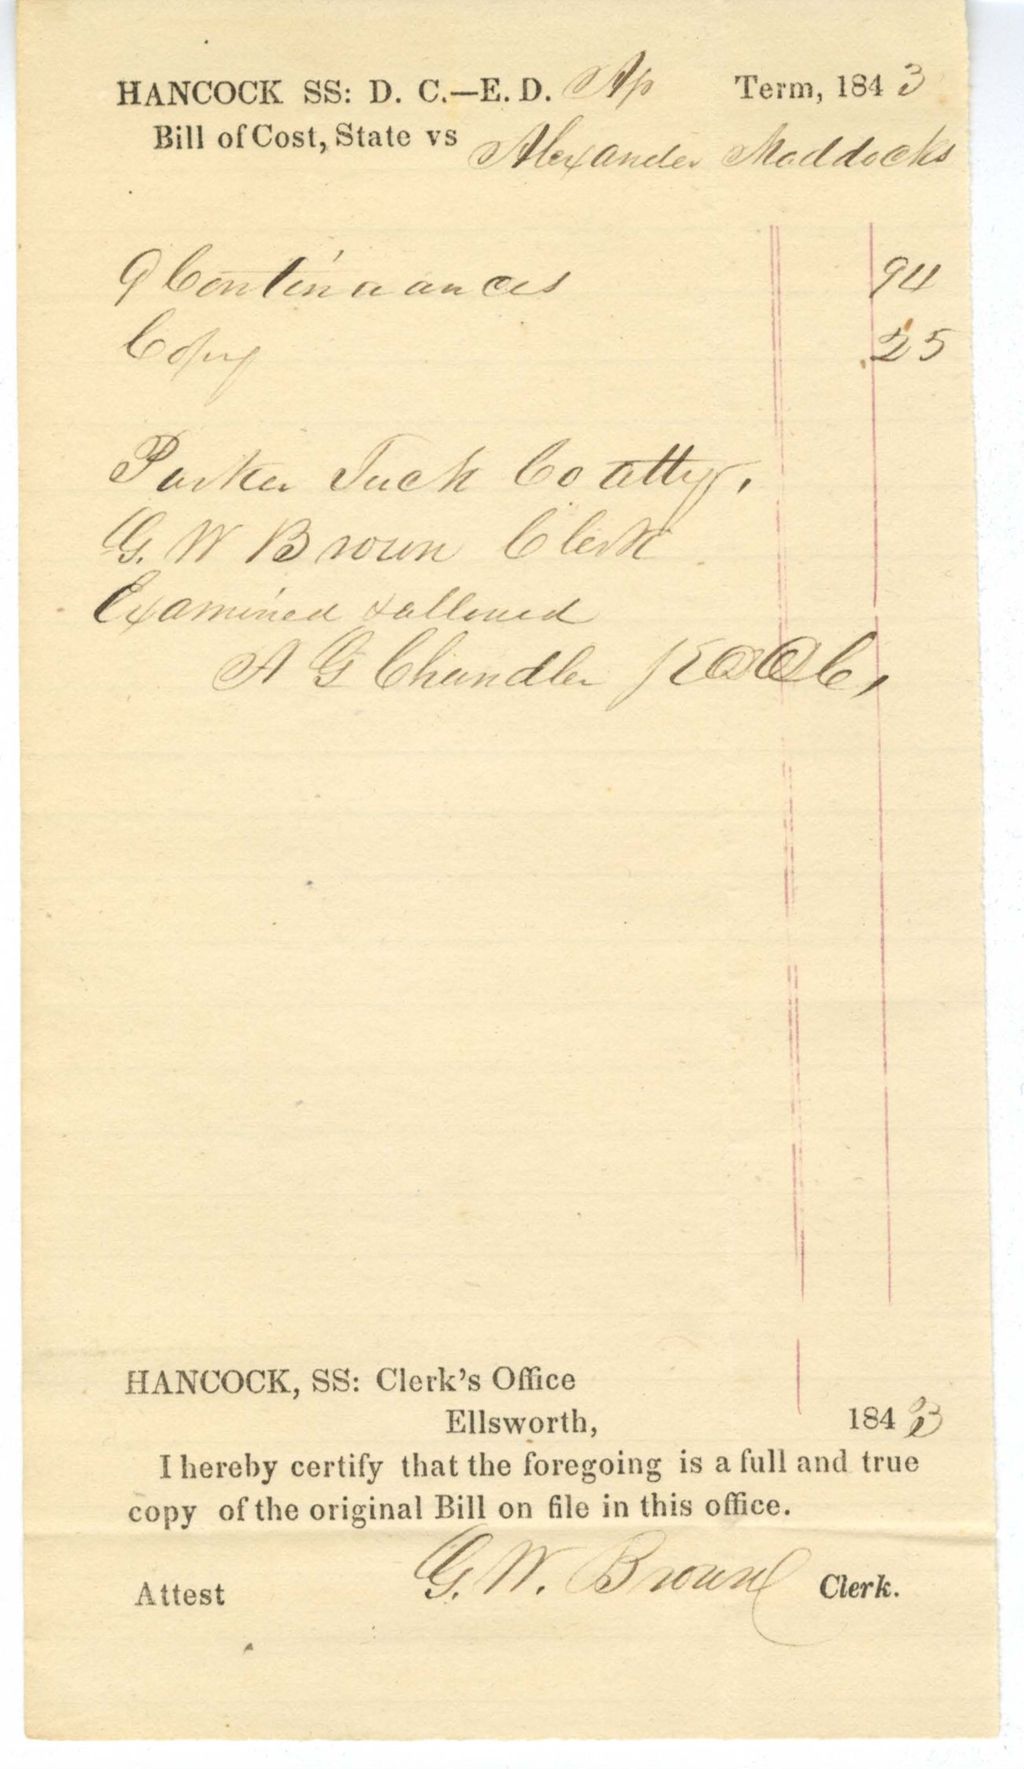 HANCOCK SS: D. C.—E. D. Ap Term, 1843
Bill of Cost, State vs Alexander Maddocks
9 Continuances 94
Copy 25
Parker Tuck Co atty,
G. W Brown Clerk
Examined & allowed
A G Chandler
HANCOCK, SS: Clerk's Office
Ellsworth, 1843
I hereby certify that the foregoing is a full and true
copy of the original Bill on file in this office.
Attest G. W. Brown Clerk.